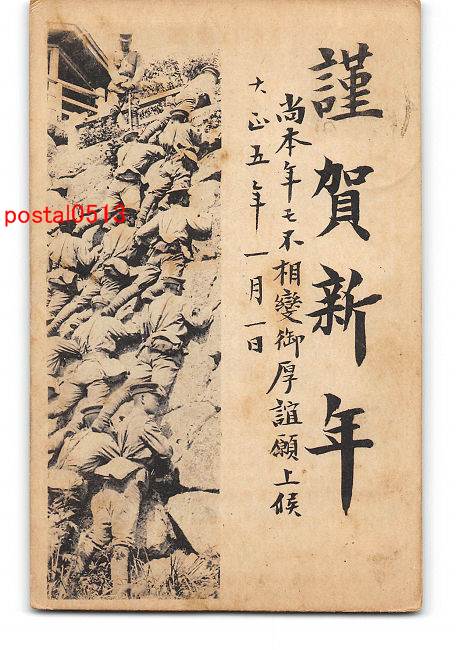 謹賀新年
尚本年モ不相變御厚誼願上候
大正五年一月一日
postal0513